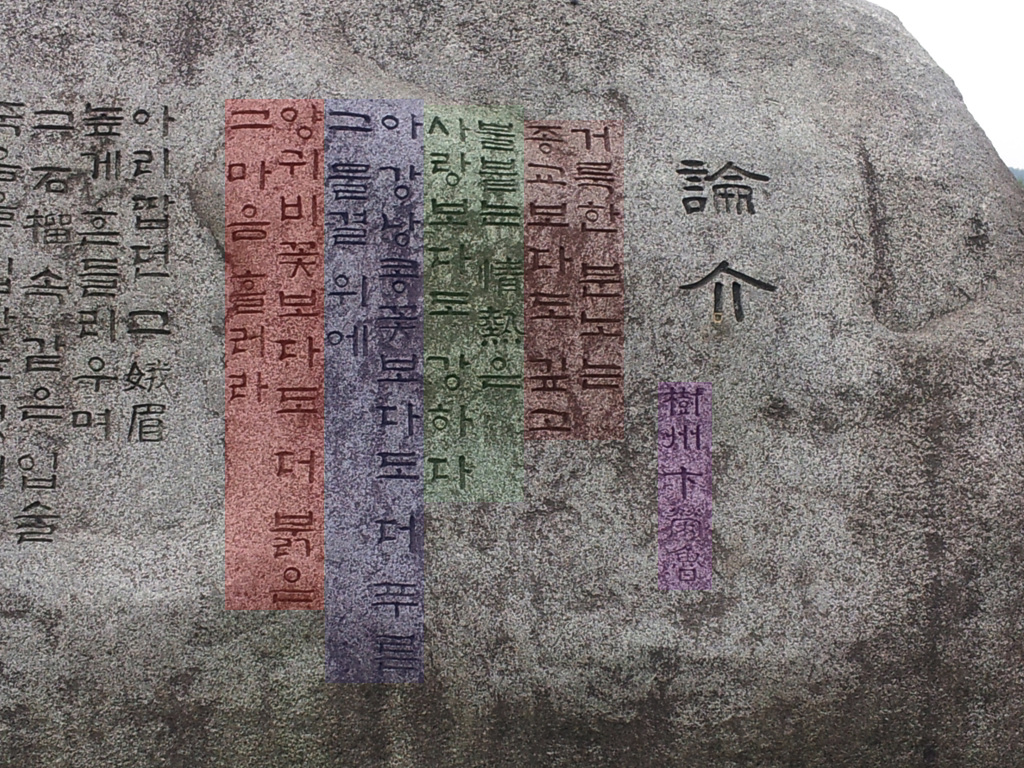 論介
樹州 卞榮魯
거룩한 분노는
종교보다도 깊고
불붙는 情熱은
사랑보다도 강하다
아 강낭콩꽃보다도 더 푸른
그 물결 위에
양귀비꽃보다도 더 붉은
그 마음 흘러라
아리땁던 그 娥眉
높게 흔들리우며
그 石榴 속 같은 입술